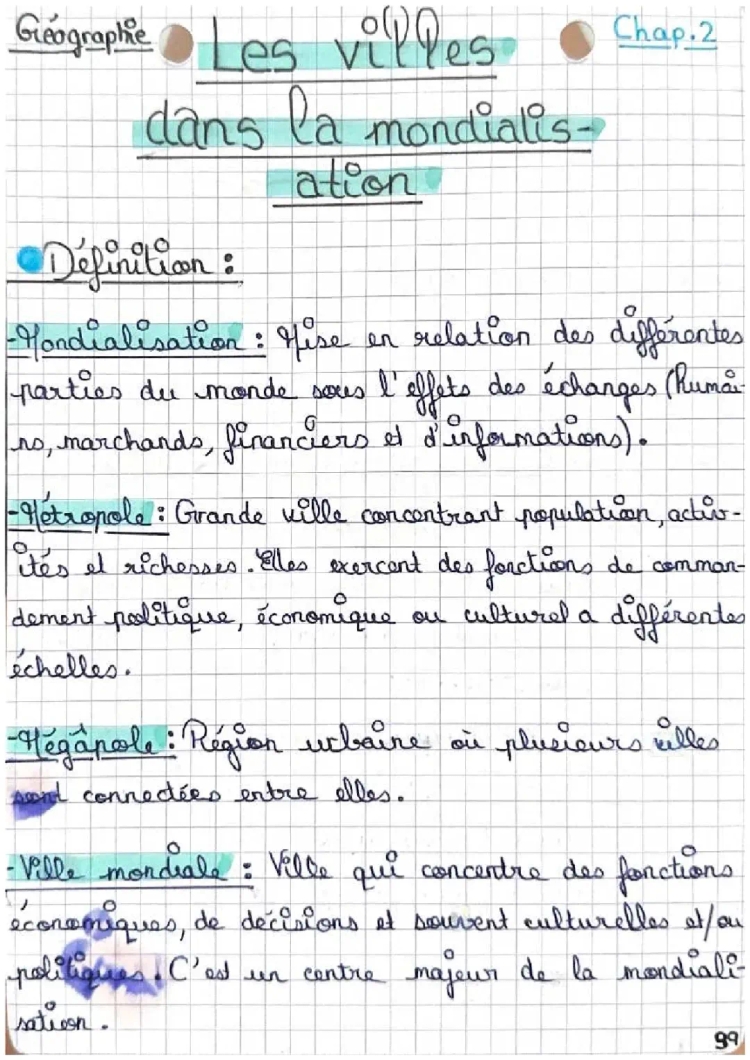 Géographie Les villes Chap.2
dans la mondialis-
ation
Définition :
-Mondialisation : Mise en relation des différentes
parties du monde sous l'effets des échanges (humai-
ns, marchands, financiers et d'informations).
-Métropole : Grande ville concentrant population, activ-
ités et richesses. Elles exercent des fonctions de comman-
dement politique, économique ou culturel a différentes
échelles.
-Mégapole : Région urbaine où plusieurs villes
sont connectées entre elles.
-Ville mondiale : Ville qui concentre des fonctions
économiques, de décisions et souvent culturelles et/ou
politiques. C'est un centre majeur de la mondiali-
sation.
99